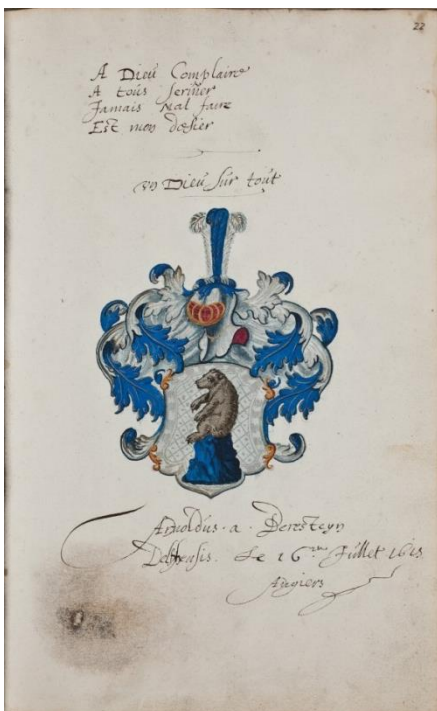 22
A Dieu Complaire
A tous servier
Jamais Mal faire
Est mon desier
Un Dieu sur tout
Arnoldus · a · Beresteyn
Delfensis. Le 16 Juillet 1615
Angiers